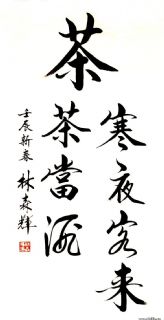 茶
寒夜客来
茶當酒
壬辰新春 林彖輝